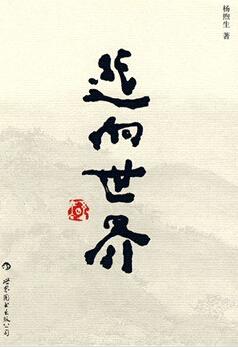 杨煦生 著
逃向世界
世界图书出版公司